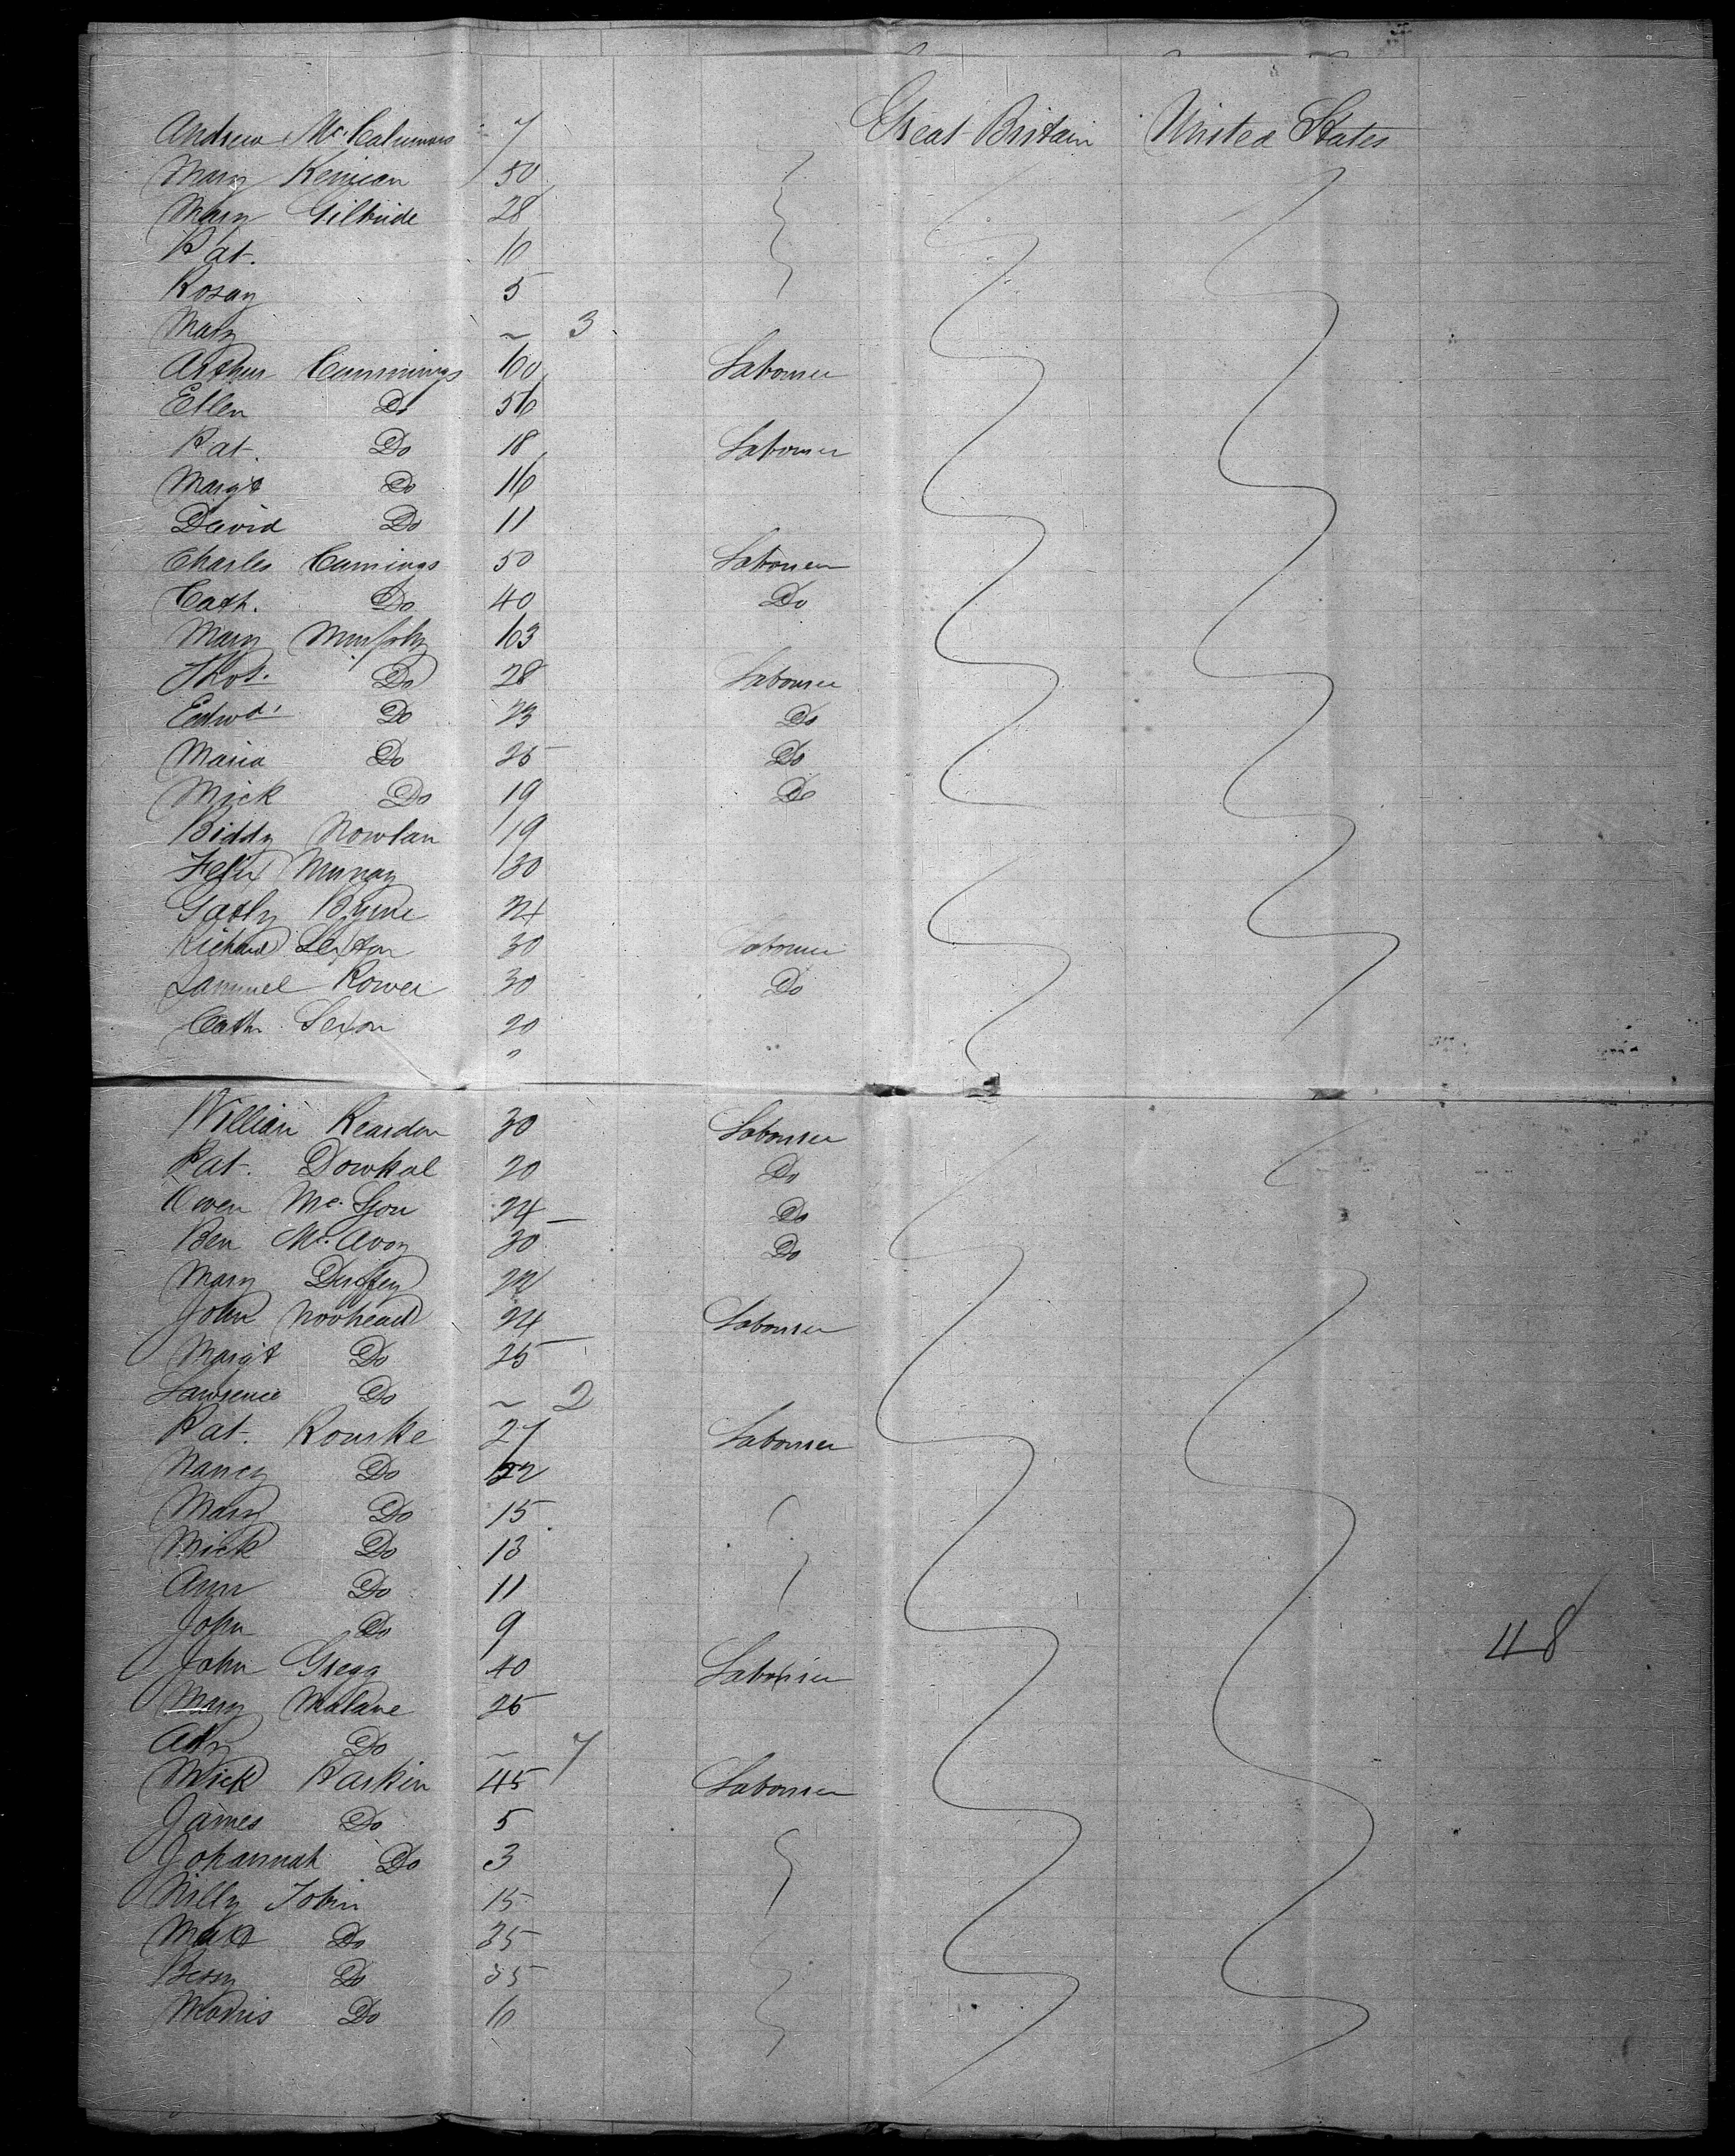 Andrew Mc. Great Britain United States
Mary 50
Mary Gilbride 28
Pat.
Rosay 5
Mary ~ 3
Arthur Cummings 60 Labourer
Ellen Do 56
Pat. Do 18 Labourer
Margt Do 16
David Do 11
Charles Cumings 50 Labourer
Cath. Do 40 Do
Mary Murphy 63
Thos. Do 28 Labourer
Edwd. Do 23 Do
Maria Do 25 Do
Mick Do 19 Do
Biddy Nowlan 19
Felix Murray 30
Byrne 24
Richard Sexton 30 Labourer
Samuel Rower 30 Do
Cath Sexon 20
William Reardon 30 Labourer
Pat. 20 Do
Owen Mc. 24 Do
Ben Mc. Avoy 30 Do
Mary Duffey 22
John 24 Labourer
Margt Do 25
Lawrence Do ~ 2
Pat. Rourke 27 Labourer
Nancy Do
Mary Do 15
Mick Do 13
Ann Do 11
John Do 9
48
John Gregg 40 Labourer
Mary Malane 25
Do ~ 7
Mick 45 Labourer
James Do 5
Johannah Do 3
Tobin 15
Do 35
Bessy Do 35
Morris Do